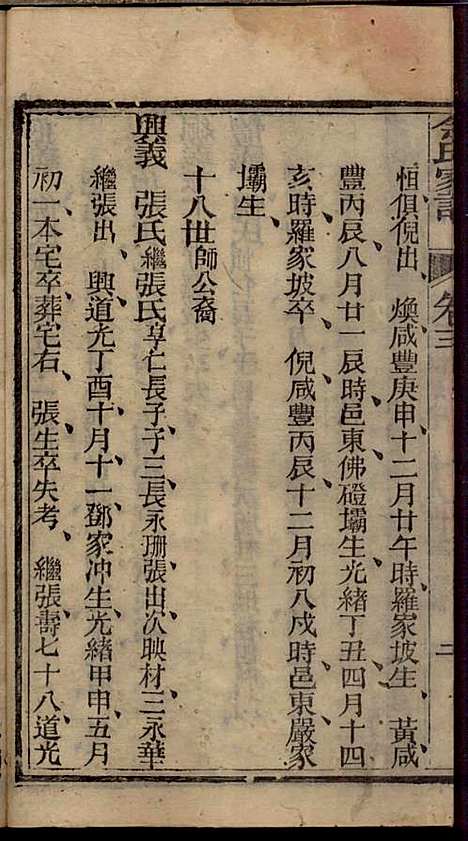 余氏家譜 卷三 二
恒俱倪出、煥咸豐庚申十二月廿午時羅家坡生、黃咸
豐丙辰八月廿一辰時邑東佛磴壩生光緒丁丑四月十四
亥時羅家坡卒、倪咸豐丙辰十二月初八戌時邑東嚴家
壩生、
十八世師公裔
興義 張氏繼張氏享仁長子子三長永珊張出次映材三永華
繼張出、興道光丁酉十月十一鄧家冲生光緒甲申五月
初一本宅卒葬宅右、張生卒失考、繼張壽七十八道光